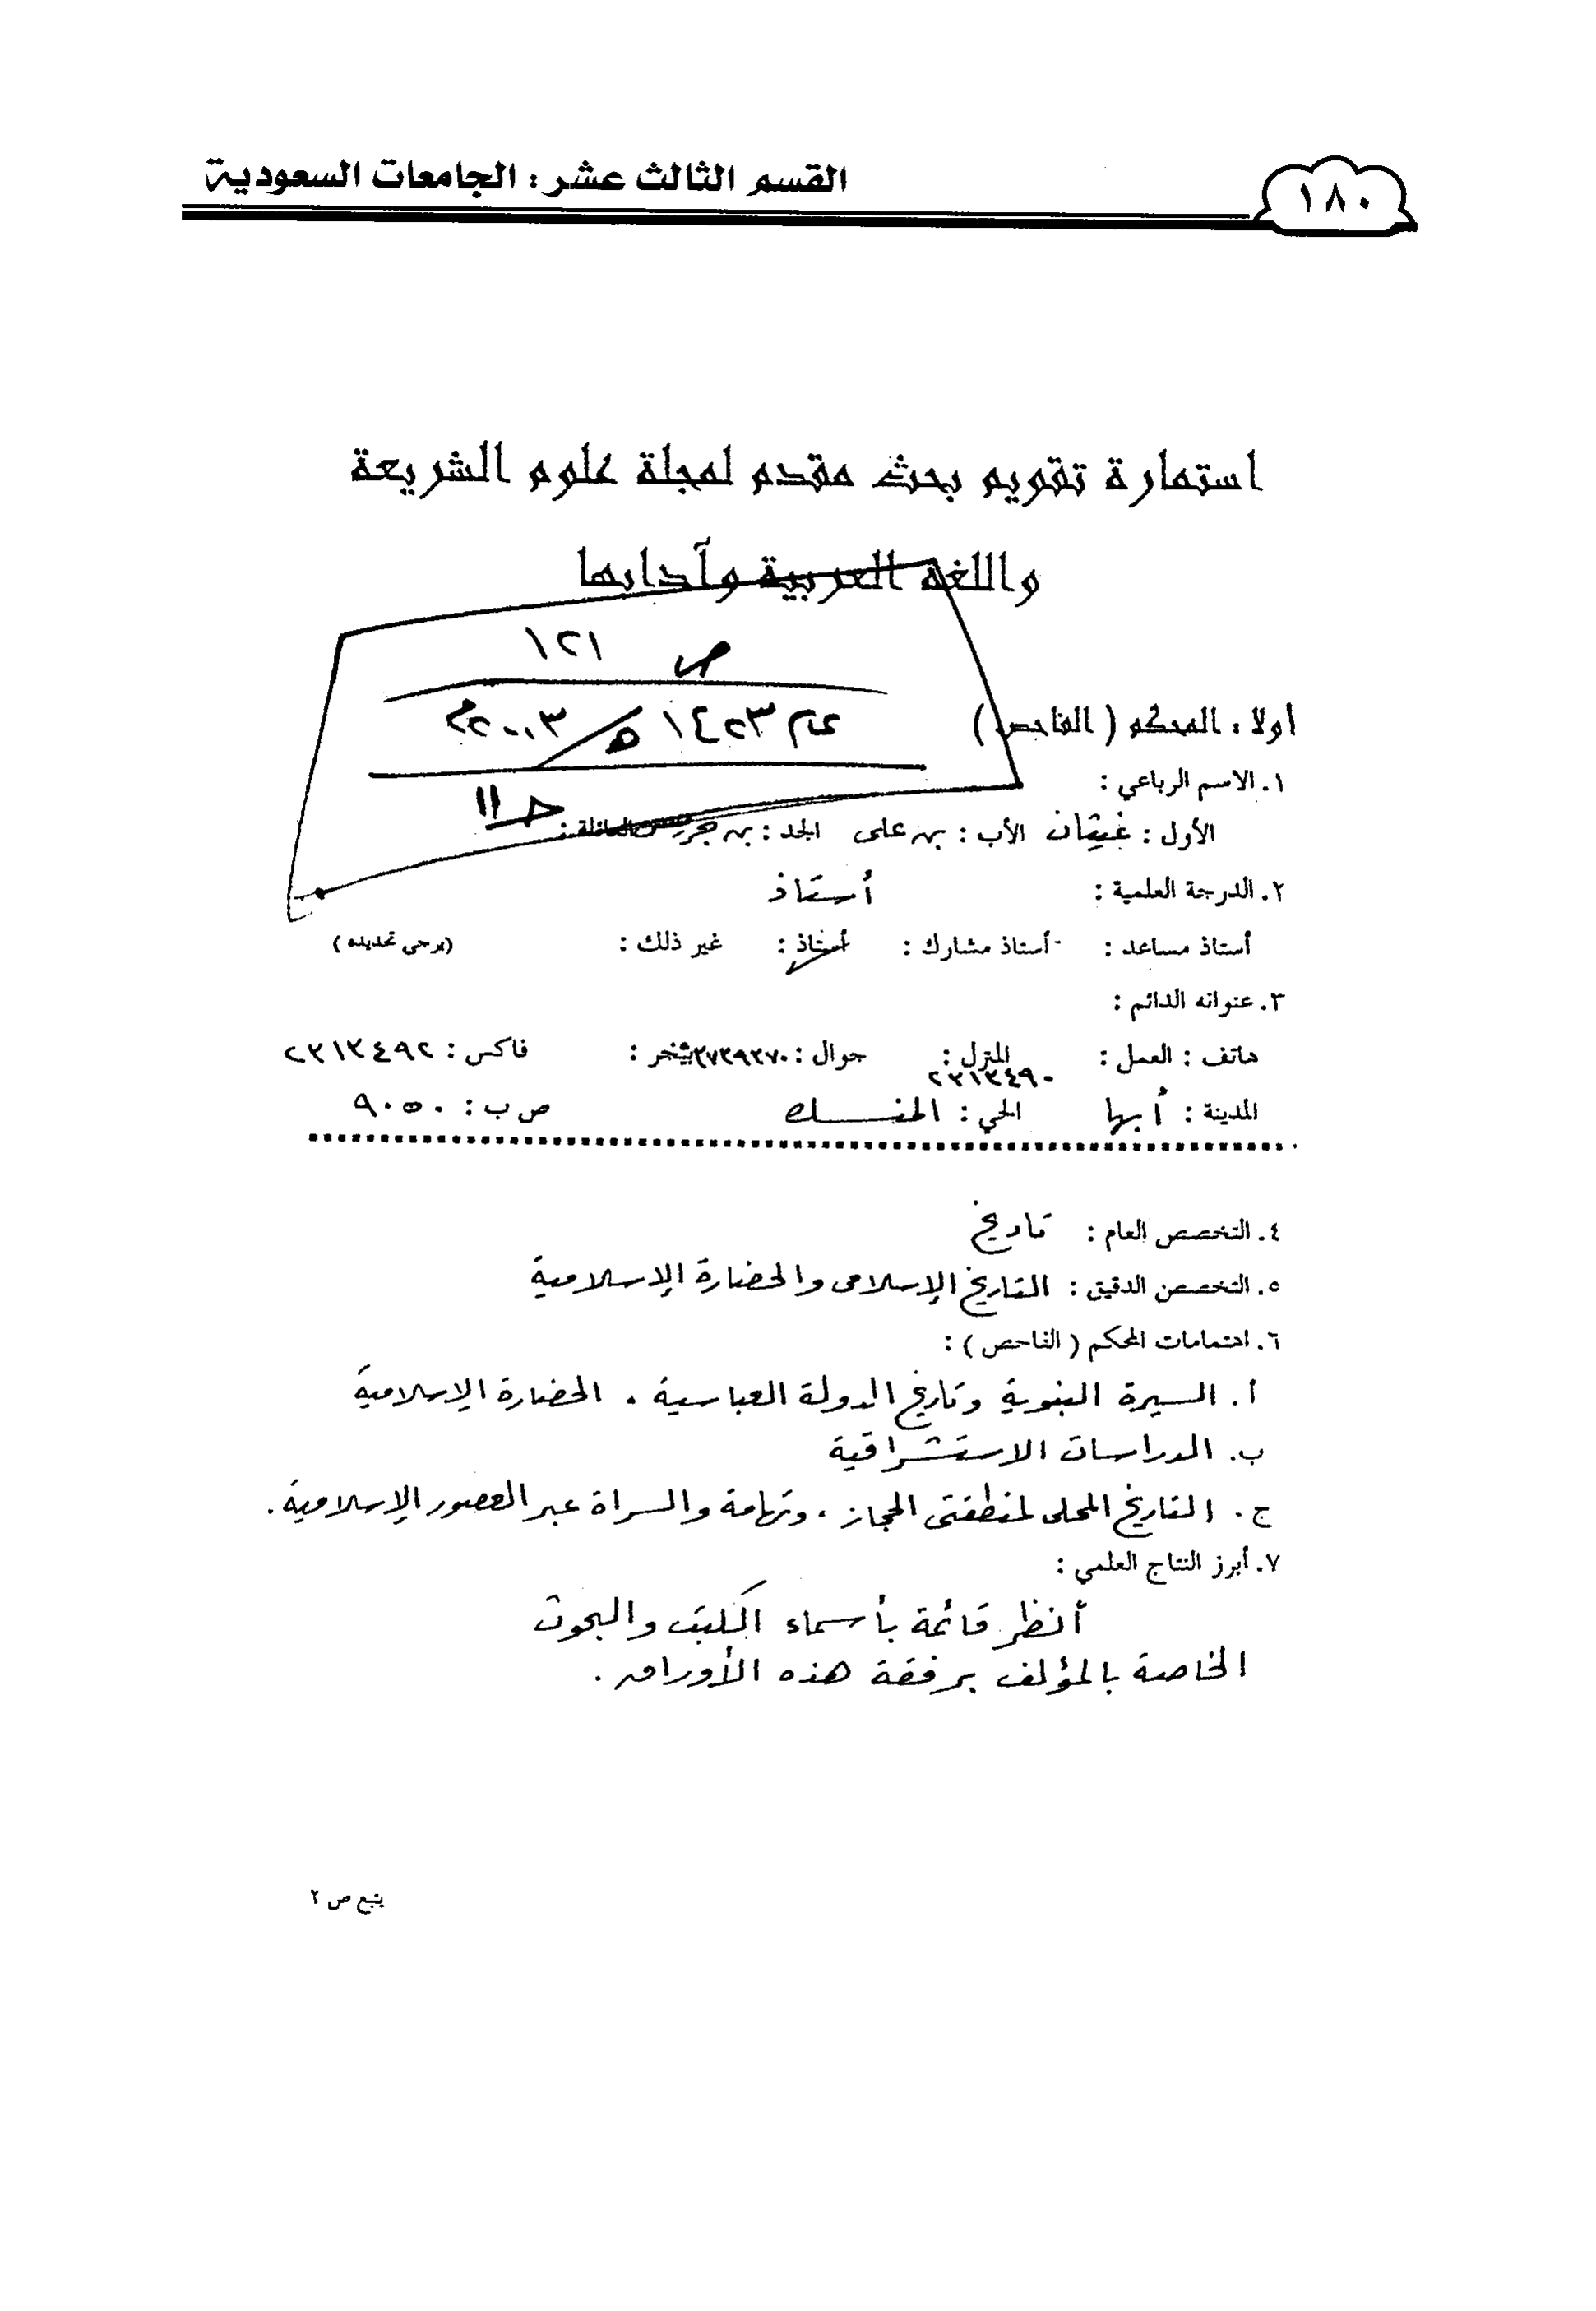 ١٨٠
القسم الثالث عشر : الجامعات السعودية
استمارة تقويم بحث مقدم لمجلة علوم الشريعة
واللغة العربية وآدابها
ص ١٢١
عام ١٤٢٣هـ/٢٠٠٣م
أولا : المحكم ( الفاحص )
١. الاسم الرباعي :
الأول : غيثان الأب : بن علي الجد : بن جريس العائلة :
٢. الدرجة العلمية : أستاذ
أستاذ مساعد : أستاذ مشارك : أستاذ : غير ذلك : (يرجى تحديده)
٣. عنوانه الدائم :
هاتف : العمل : المنزل : ٢٣١٣٤٩٠ جوال : فاكس : ٢٣١٣٤٩٢
المدينة : أبها الحي : المنسك ص ب : ٩٠٥٠
٤. التخصص العام : تاريخ
٥. التخصص الدقيق : التاريخ الإسلامي والحضارة الإسلامية
٦. اهتمامات المحكم ( الفاحص ) :
أ. السيرة النبوية وتاريخ الدولة العباسية . الحضارة الإسلامية
ب. الدراسات الاستشراقية
ج. التاريخ المحلي لمنطقتي الحجاز ، وتهامة والسراة عبر العصور الإسلامية .
٧. أبرز النتاج العلمي :
أنظر قائمة بأسماء الكتب والبحوث
الخاصة بالمؤلف برفقة هذه الأوراق .
يتبع ص ٢